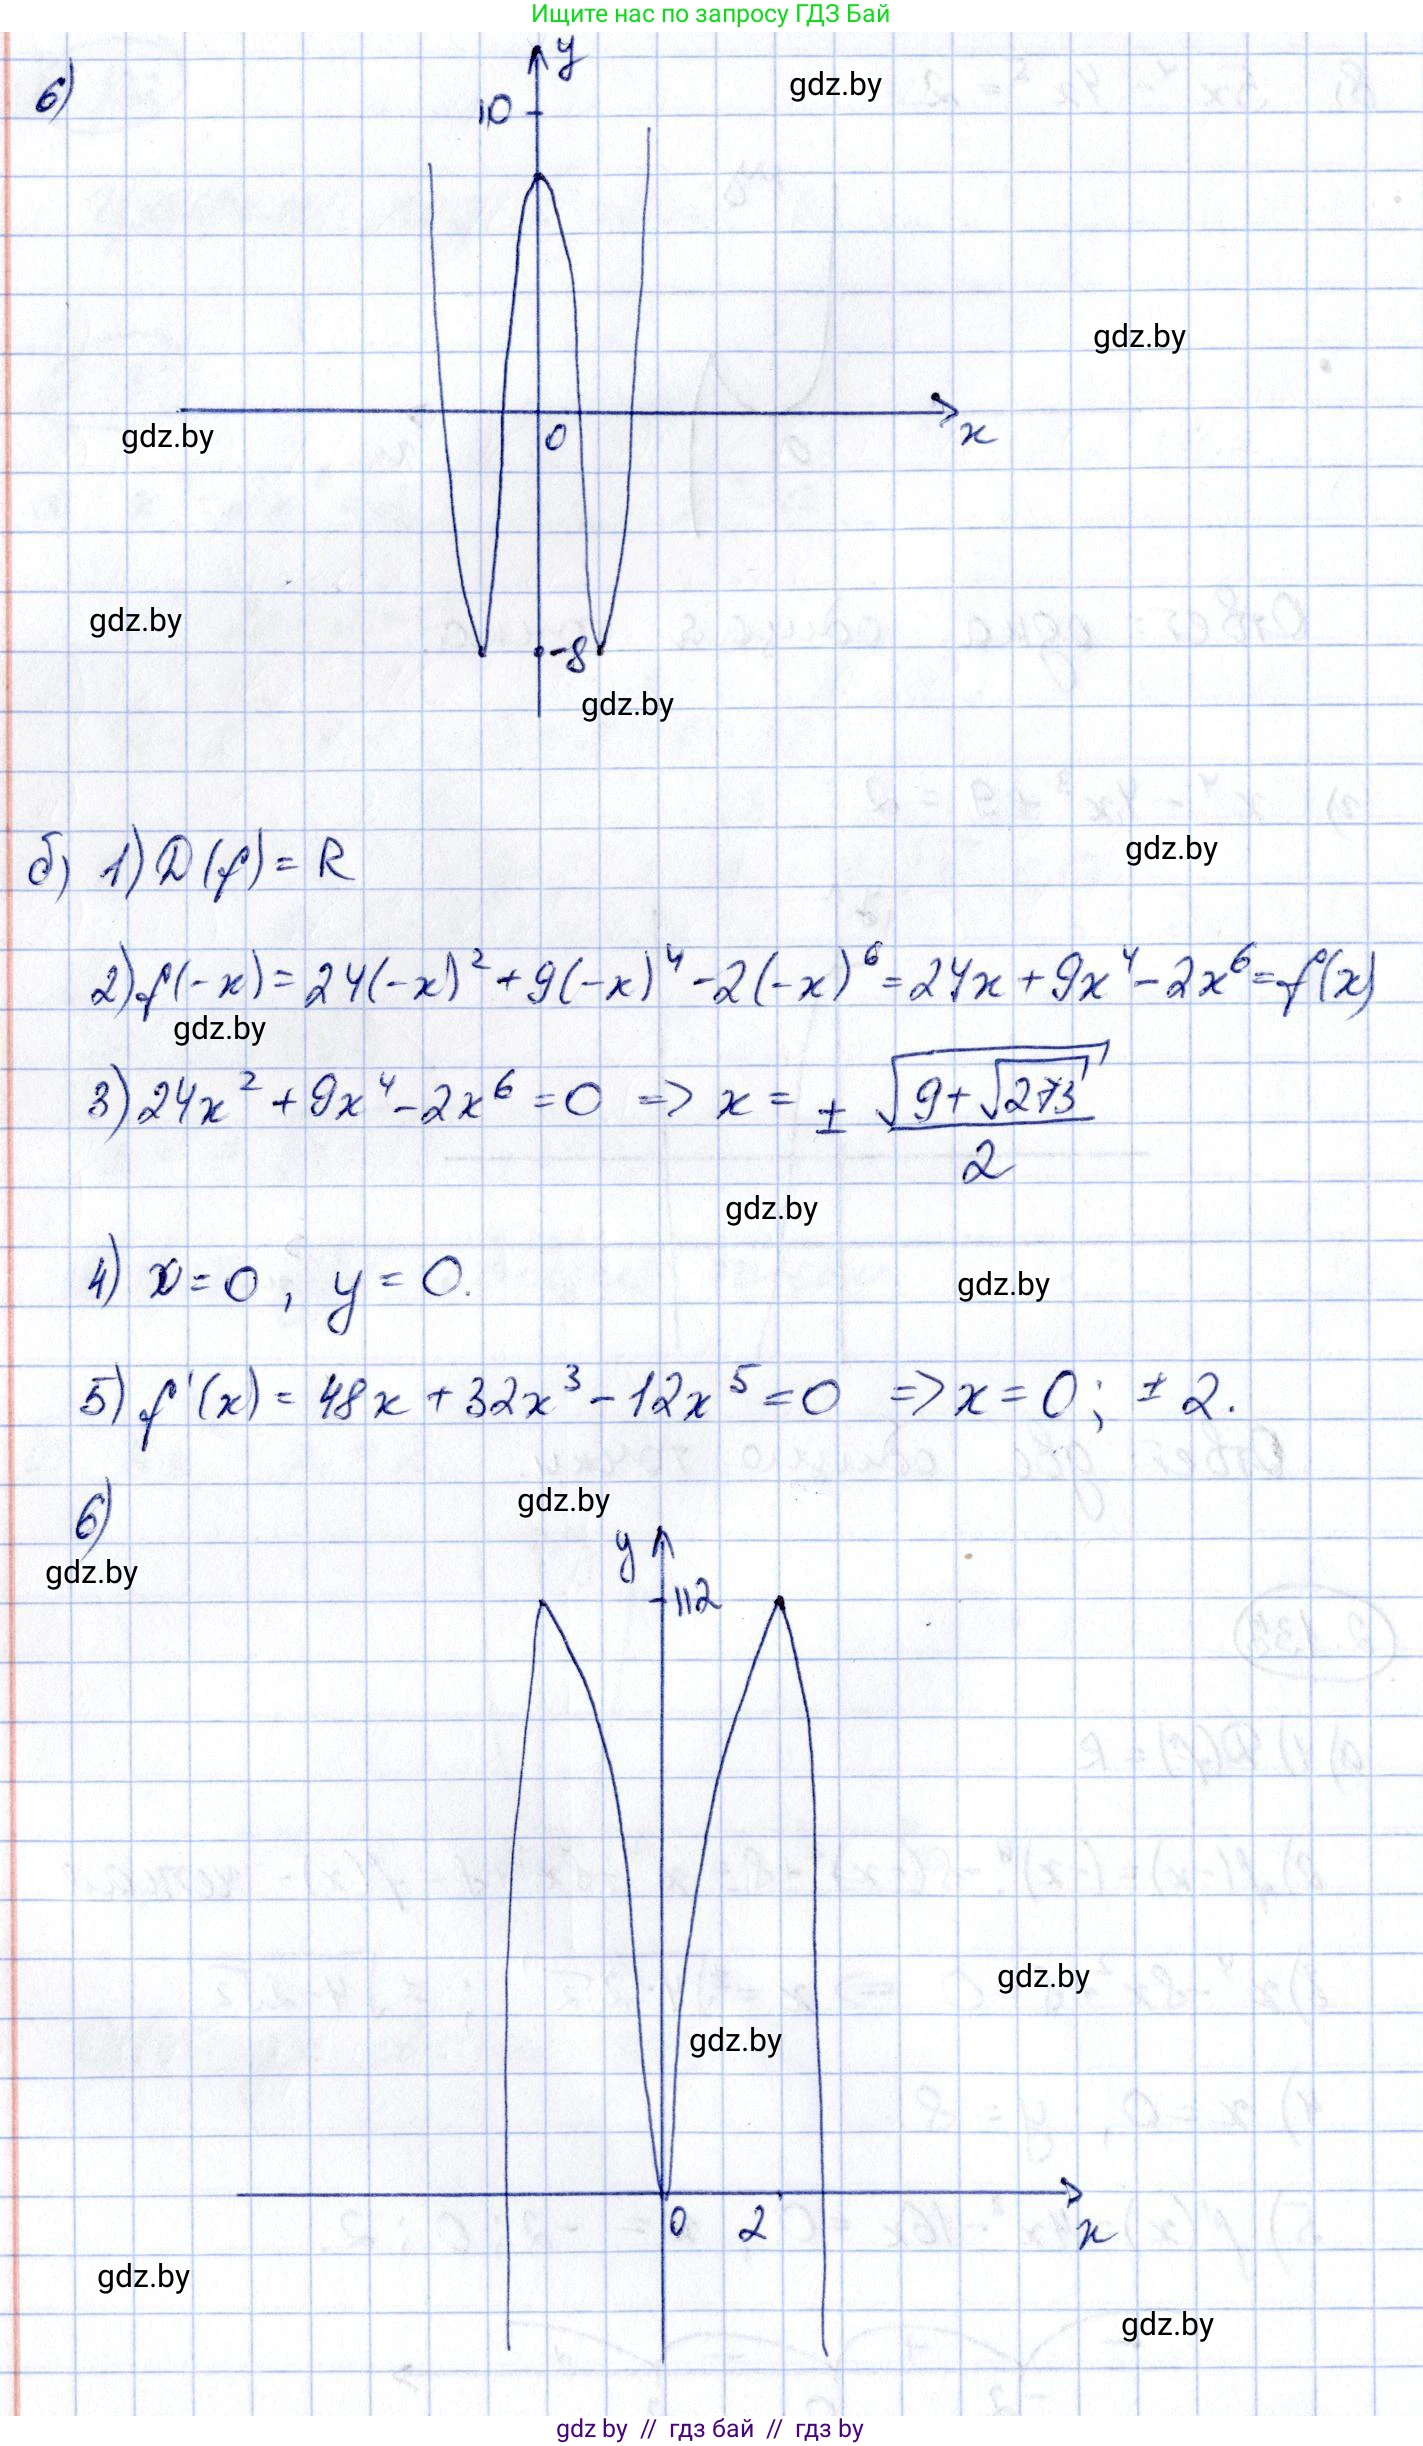 Ищите нас по запросу ГДЗ Бай
6)
y
10
gdz.by
gdz.by
0
x
gdz.by
gdz.by
-8
gdz.by
gdz.by
б) 1) D(f) = R
2) f(-x) = 24(-x)² + 9(-x)⁴ - 2(-x)⁶ = 24x + 9x⁴ - 2x⁶ = f(x)
gdz.by
3) 24x² + 9x⁴ - 2x⁶ = 0 => x = ± √(9+√273) / 2
gdz.by
4) x = 0, y = 0.
gdz.by
5) f'(x) = 48x + 32x³ - 12x⁵ = 0 => x = 0; ± 2.
gdz.by
6)
gdz.by
y
112
gdz.by
gdz.by
0 2
x
gdz.by
gdz.by
gdz by // гдз бай // гдз by